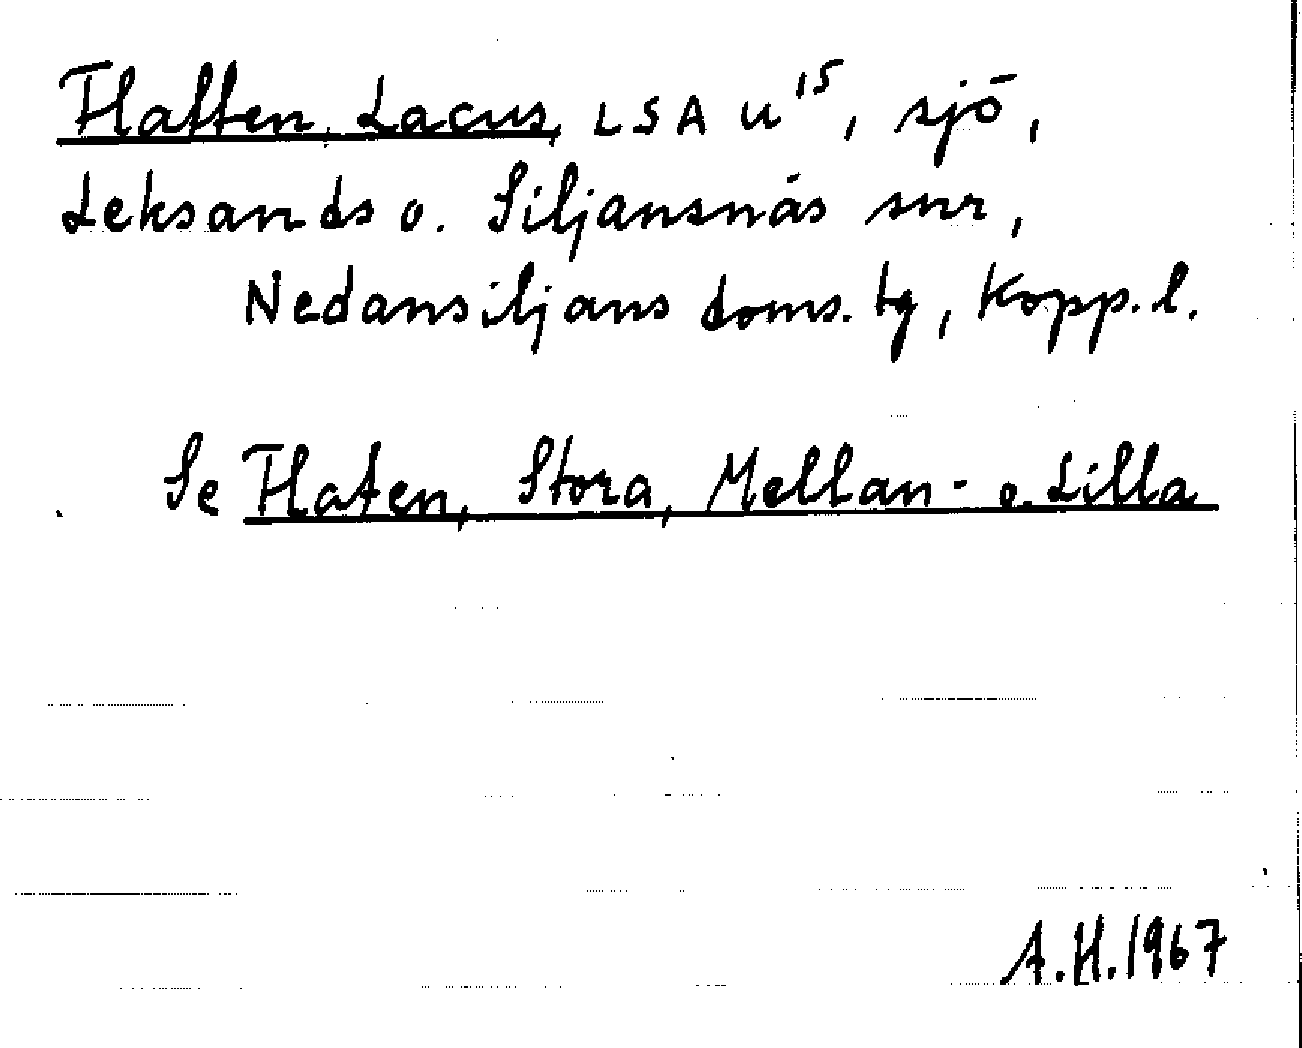 Flatten, Lacus, LSA U¹⁵, sjö,
Leksands o. Siljansnäs snr,
Nedansiljans doms. tg, Kopp. l.
Se Flaten, Stora, Mellan- o. Lilla
A.H. 1967